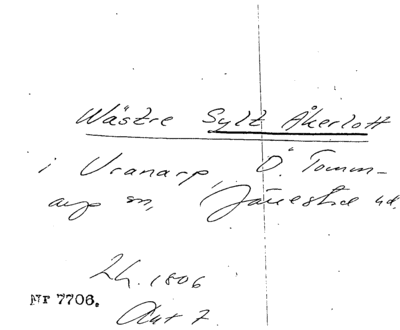 Wästre Sylt Åkerlott
i Vranarp, Ö. Tomm-
arp sn, Järrestad hd.
LH. 1806
Nr 7706.
Akt 7